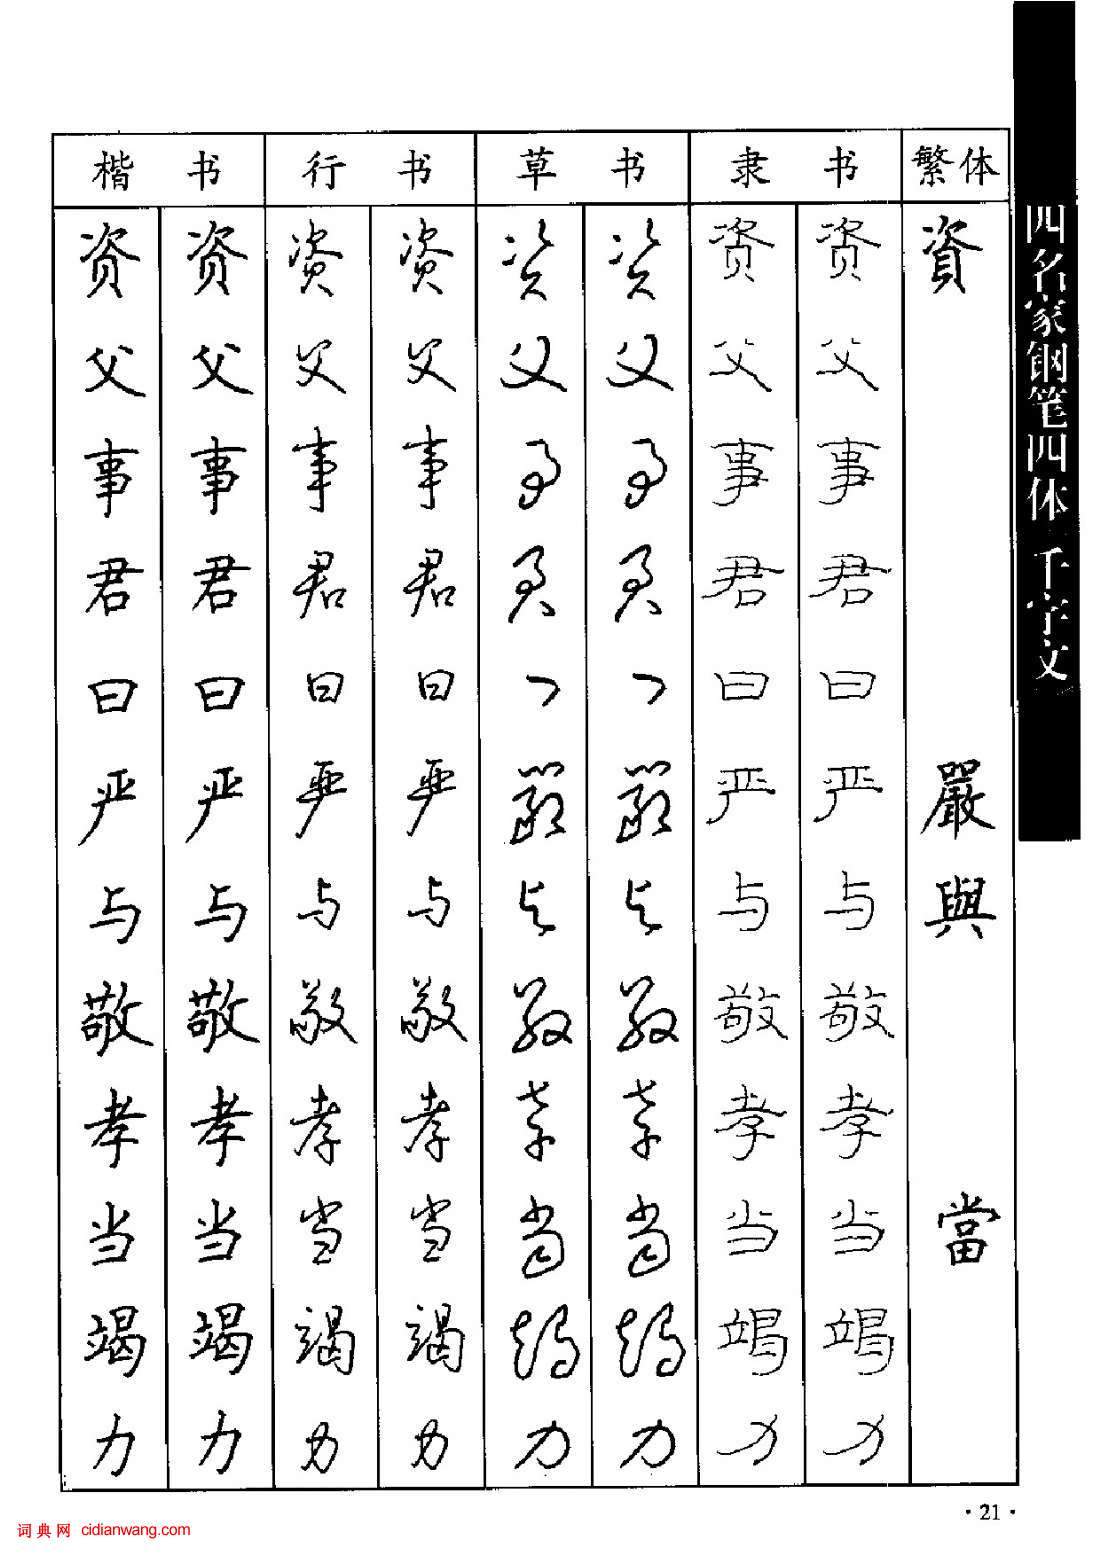 楷书 行书 草书 隶书 繁体
资 资 资 资 资 资 资 资 資
父 父 父 父 父 父 父 父
事 事 事 事 事 事 事 事
君 君 君 君 君 君 君 君
曰 曰 曰 曰 曰 曰 曰 曰
严 严 严 严 嚴 嚴 严 严 嚴
与 与 与 与 与 与 与 与 與
敬 敬 敬 敬 敬 敬 敬 敬
孝 孝 孝 孝 孝 孝 孝 孝
当 当 当 当 當 當 当 当 當
竭 竭 竭 竭 竭 竭 竭 竭
力 力 力 力 力 力 力 力
四名家钢笔四体千字文
·21·
词典网 cidianwang.com